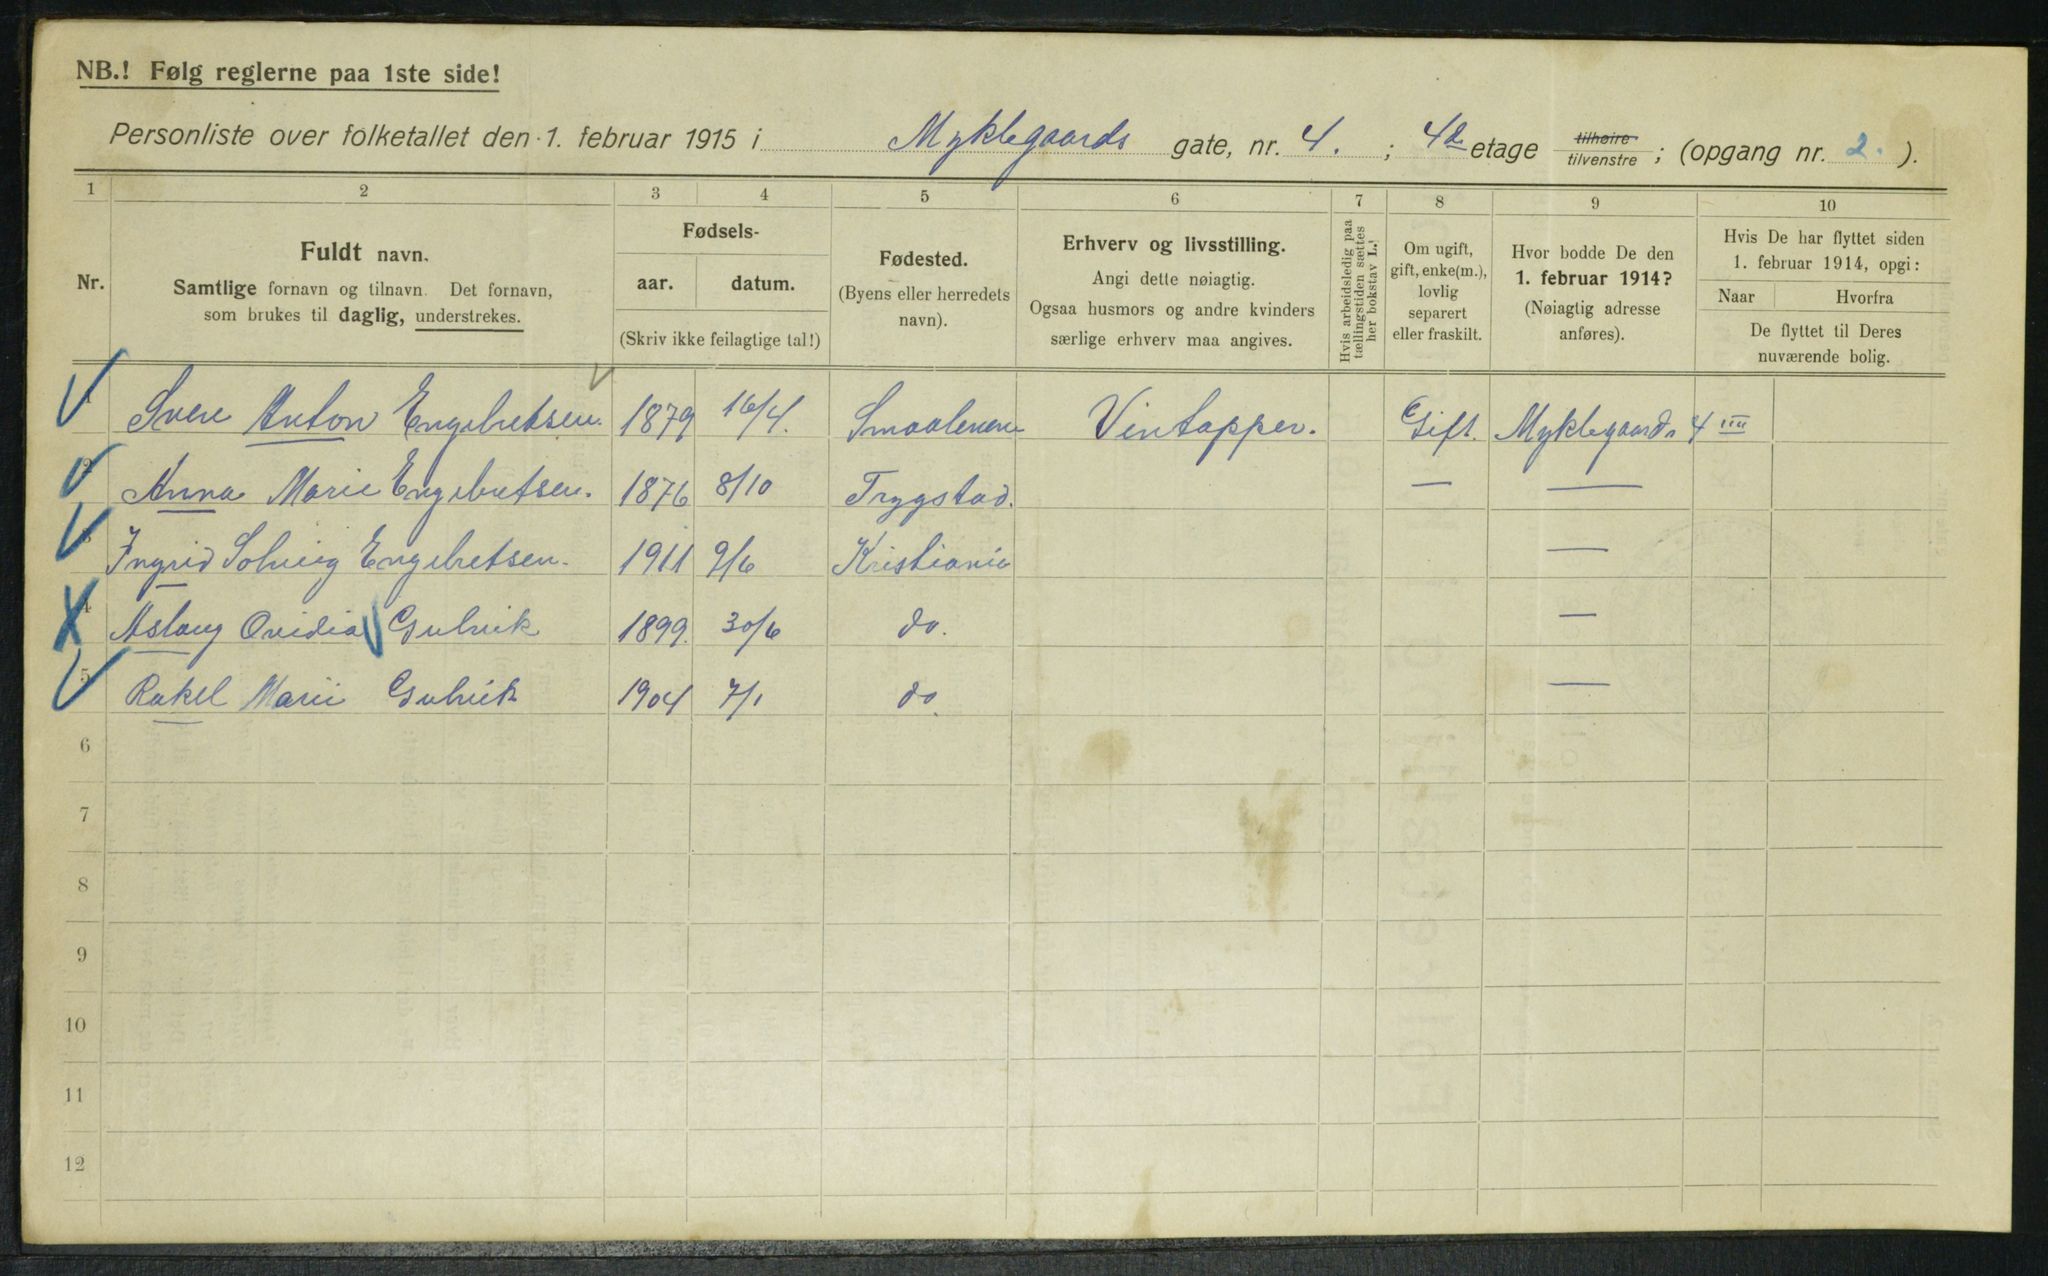 NB.! Følg reglerne paa 1ste side!
Personliste over folketallet den 1. februar 1915 i Myklegaards gate, nr. 4. ; 4de etage tilhøire tilvenstre ; (opgang nr. 2. ).
1 2 3 4 5 6 7 8 9 10
Nr.
Fuldt navn.
Samtlige fornavn og tilnavn. Det fornavn,
som brukes til daglig, understrekes.
Fødsels-
aar. datum.
(Skriv ikke feilagtige tal!)
Fødested.
(Byens eller herredets
navn).
Erhverv og livsstilling.
Angi dette nøiagtig.
Ogsaa husmors og andre kvinders
særlige erhverv maa angives.
Hvis arbeidsledig paa
tællingstiden sættes
her bokstav L.!
Om ugift,
gift, enke(m.),
lovlig
separert
eller fraskilt.
Hvor bodde De den
1. februar 1914?
(Nøiagtig adresse
anføres).
Hvis De har flyttet siden
1. februar 1914, opgi:
Naar Hvorfra
De flyttet til Deres
nuværende bolig.
1 Sven Anton Engebretsen. 1879 16/4. Smaalenene Vintapper. Gift. Myklegaards 4 IIII
2 Anna Marie Engebretsen. 1876 8/10 Trygstad. — —
3 Ingrid Solveig Engebretsen. 1911 9/6 Kristiania —
4 Aslaug Ovidia Gulvik 1899. 30/6 do. —
5 Rakel Marie Gulvik 1904 7/1 do. —
6
7
8
9
10
11
12